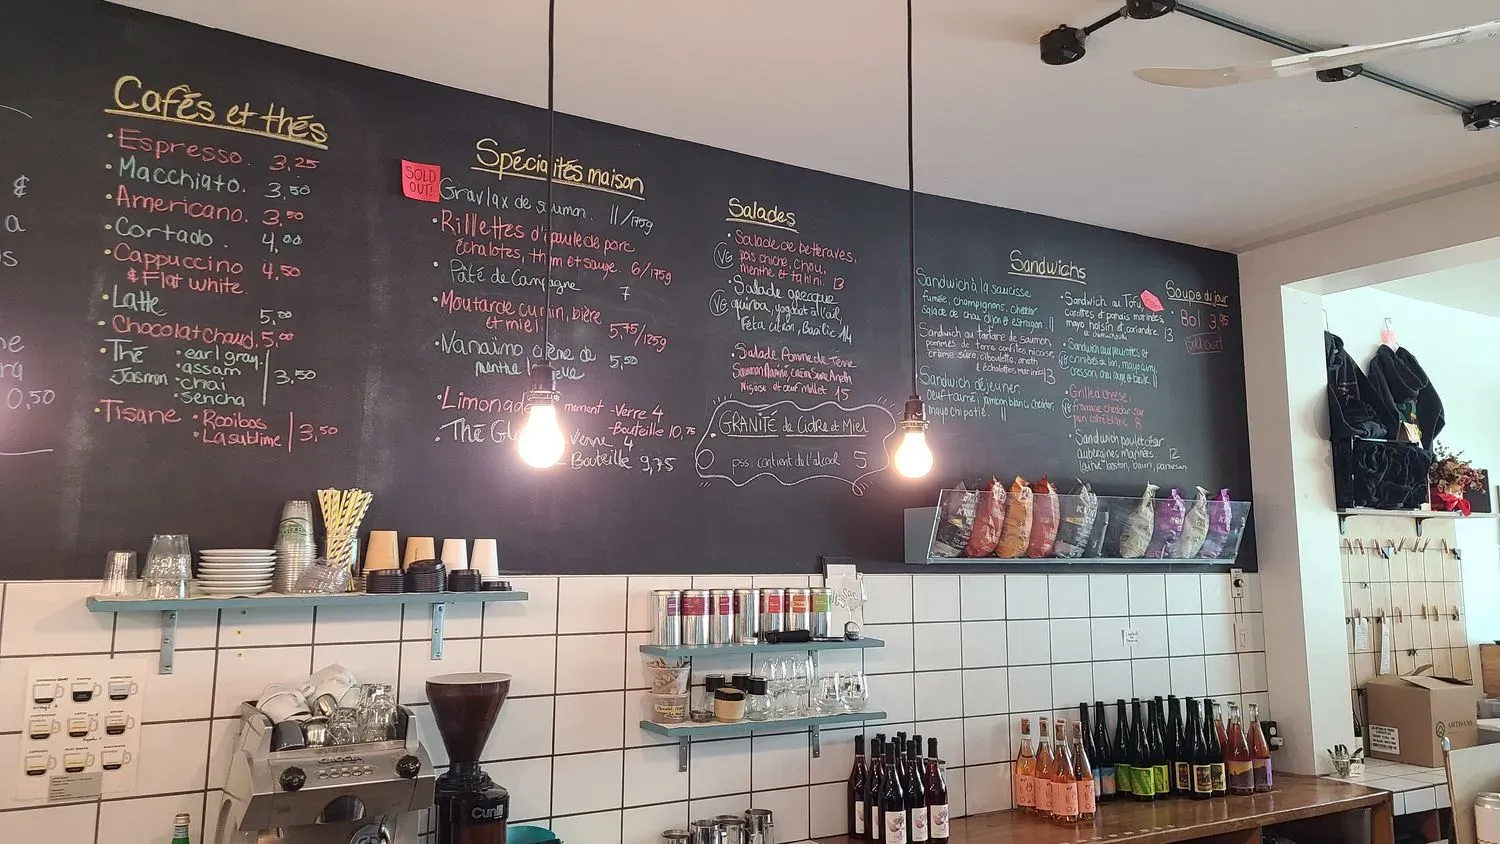 ¢
a
0,50
Cafés et thés
• Espresso. 3,25
• Macchiato. 3,50
• Americano. 3,50
• Cortado. 4,00
• Cappuccino 4,50
& Flat white.
• Latte 5,00
• Chocolat chaud, 5,00
• Thé • earl gray.
Jasmin • assam 3,50
• chai
• sencha
• Tisane • Rooibos 3,50
• La sublime
Spécialités maison
SOLD OUT!
Gravlax de saumon. 11/175g
• Rillettes d'épaule de porc
échalotes, thym et sauge. 6/175g
• Pâté de Campagne 7
• Moutarde cumin, bière
et miel. 5,75/125g
• Nanaimo crème de
menthe 5,50
• Limonade moment - Verre 4
- Bouteille 10,75
• Thé Gl Verre 4
- Bouteille 9,75
Salades
• Salade de betteraves,
VG pois chiche, chou,
menthe et tahini. 13
• Salade grecque
VG quinoa, yogourt à l'ail,
feta citron, Basilic 14
• Salade Pomme de Terre
Saumon Mariné, crème Sure, Aneth
Niçoise et œuf mollet 15
GRANITÉ de Cidre et Miel
pss: contient de l'alcool 5
Sandwichs
Sandwich à la saucisse
fumée, champignons, cheddar
Salade de chou, dijon et estragon. 11
Sandwich au tartare de saumon,
pommes de terre confites niçoise,
crème sure, ciboulette, aneth
échalotes marinées 13
Sandwich déjeuner,
œuf tamé, jambon blanc, cheddar,
mayo chipotle. 11
• Sandwich au Tofu,
carottes et panais marinées
mayo hoisin et coriandre. 13
• Sandwich aux pleurotes et
VG crinières de lion, mayo curry,
cresson, chou rouge et basilic 11
• Grilled cheese,
VG fromage cheddar sur
pain carré blanc 8
• Sandwich poulet césar
aubergines marinées. 12
laitue, boston, bacon, parmesan
Soupe du jour
• Bol 3,95
Sold out
ARTISANS